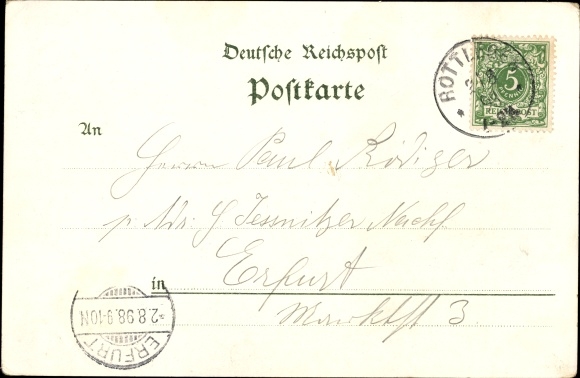 Deutsche Reichspost
Postkarte
ROTTL
5
PFENNIG
REICHSPOST
An
Herrn Paul Rödiger
p. Adr. J Jessnitzer Nachf
Erfurt
in
Marktst 3
*2.8.98.9-10N
ERFURT